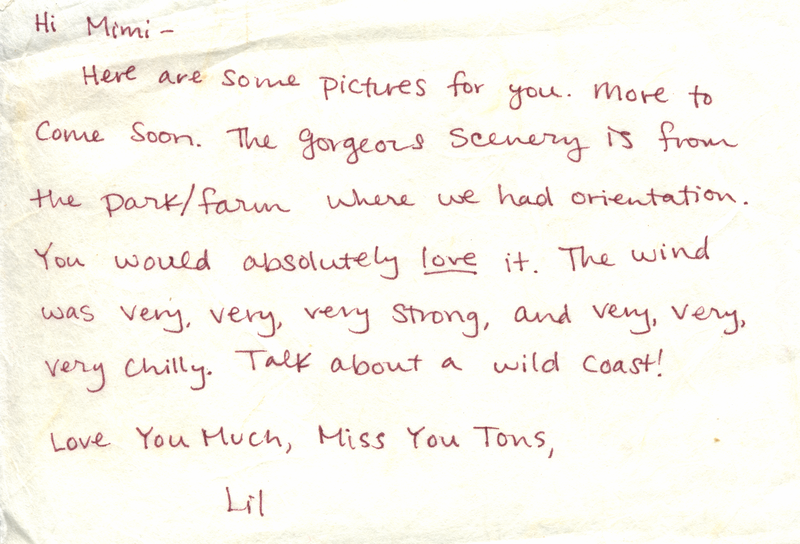 Hi Mimi -
Here are some pictures for you. More to
come soon. The gorgeous scenery is from
the park/farm where we had orientation.
You would absolutely love it. The wind
was very, very, very strong, and very, very,
very chilly. Talk about a wild coast!
Love You Much, Miss You Tons,
Lil